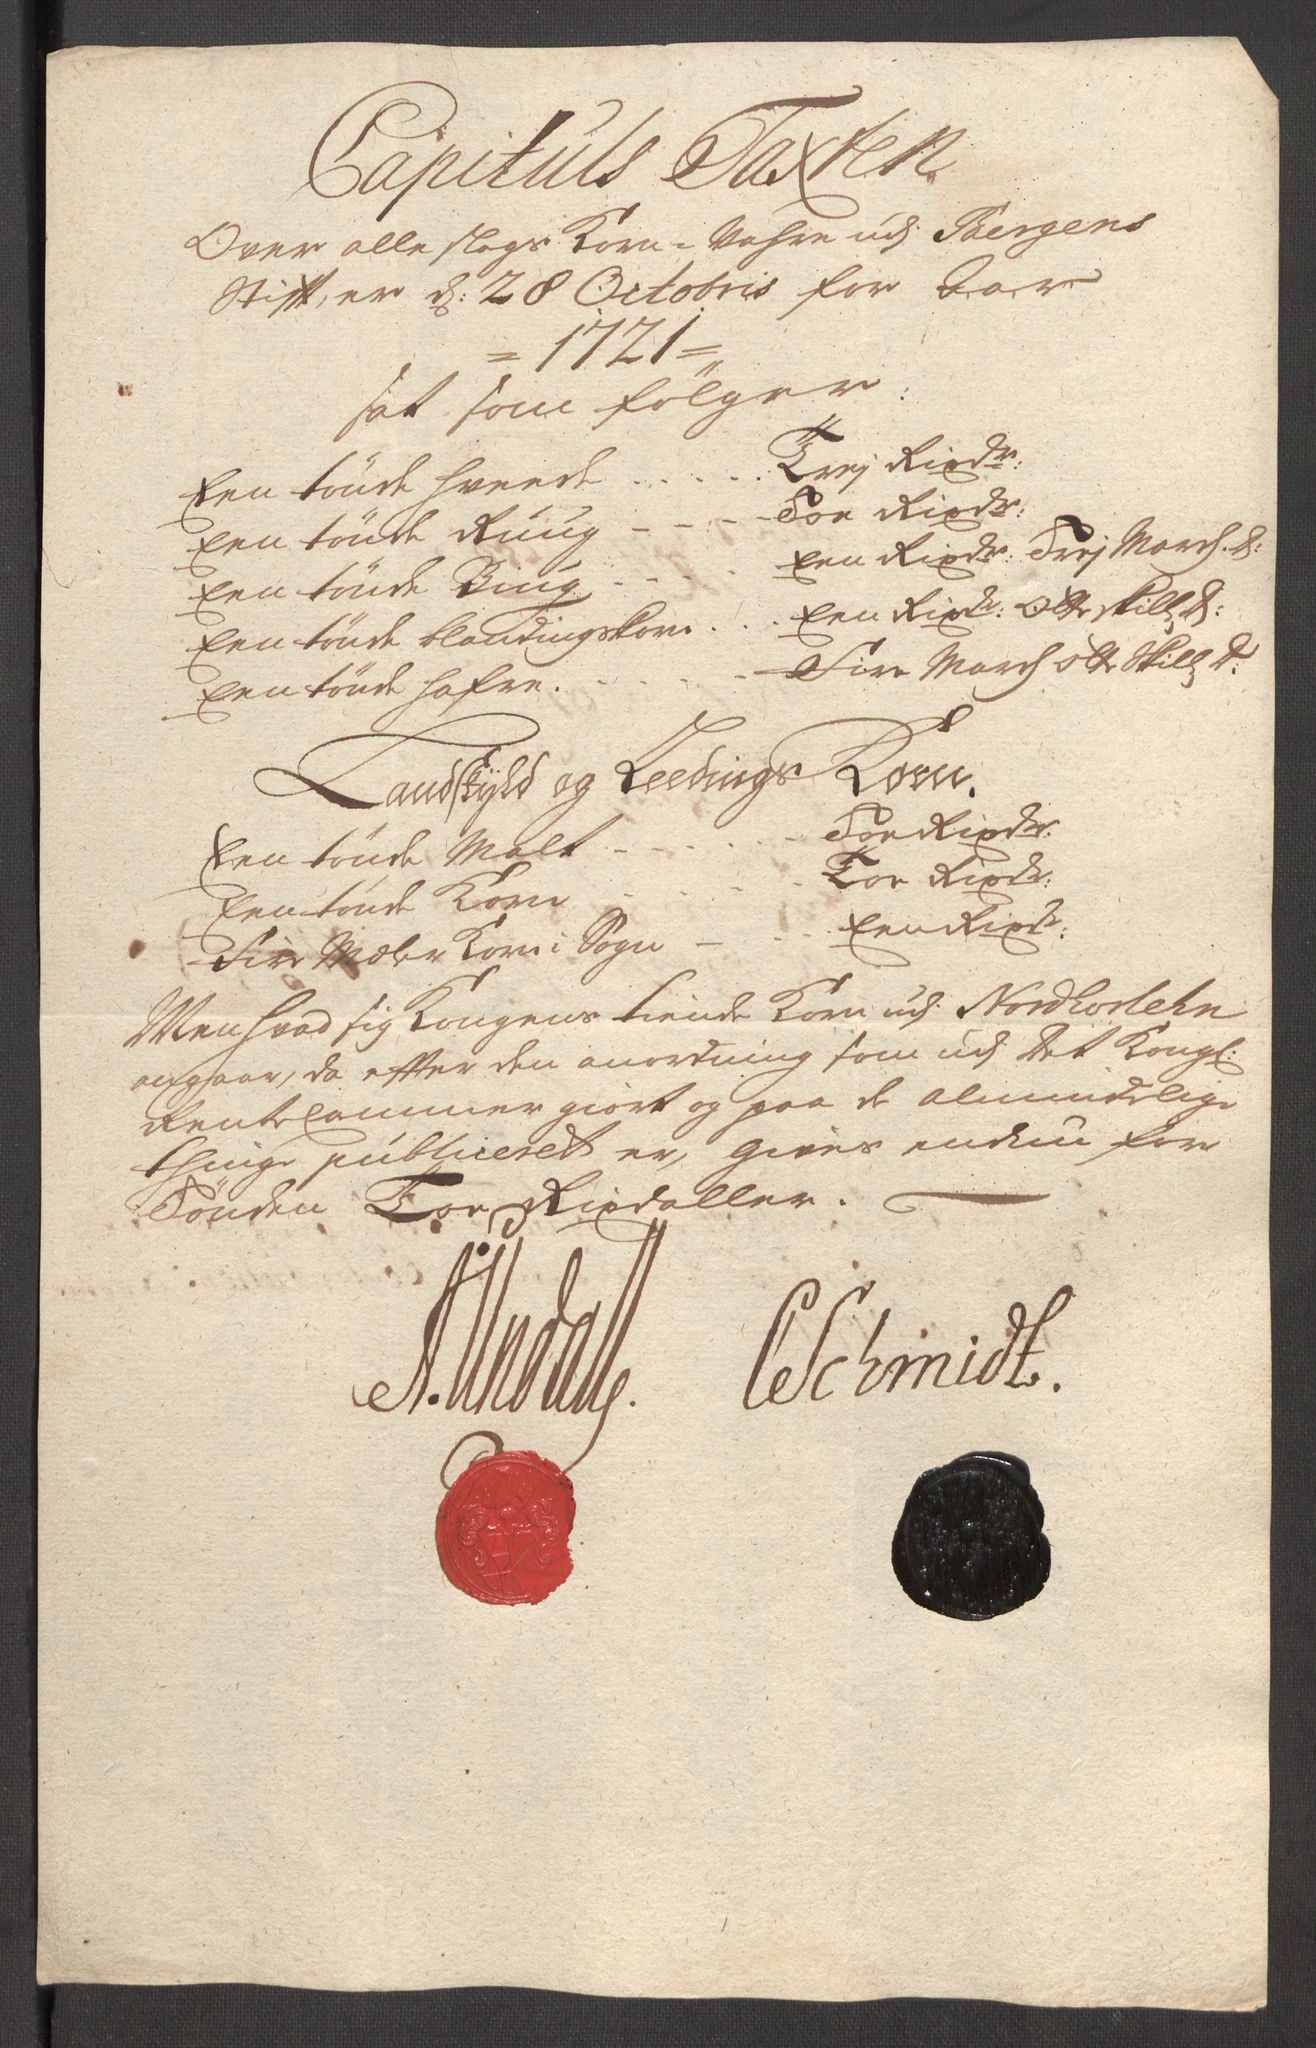 Capituls Taxten
Over alle slags Korn-Vahre udj Bergens
Stift, er d: 28 Octobris for Aar
= 1721 =
sat som følger:
Een tønde hveede . . . . . Trej Rixdr:
Een tønde Rüüg - - - - Toe Rixdr:
Een tønde Biüg . . . . . Een Rixdr: Trej March. d:
Een tønde blandingskorn . . . Een Rixdr: Otte skill d:
Een tønde hafre . . . . . Fire March otte Skill d:
Landskyld og Leedings Korn.
Een tønde Malt - - - - - Toe Rixdr:
Een tønde Korn - - - - - Toe Rixdr:
Fire Mæler Korn i Sogn - - - Een Rixdr:
Men hvad sig Kongens tiende Korn udj Nordhorlehn
angaar, da efter den anordning som udj Det Kongl:
Rentekammer giort og paa de almindelige
thinge publiceret er, gives endnu for
Tønden Toe Rixdaller.
A. Undall.
CSchmidt.